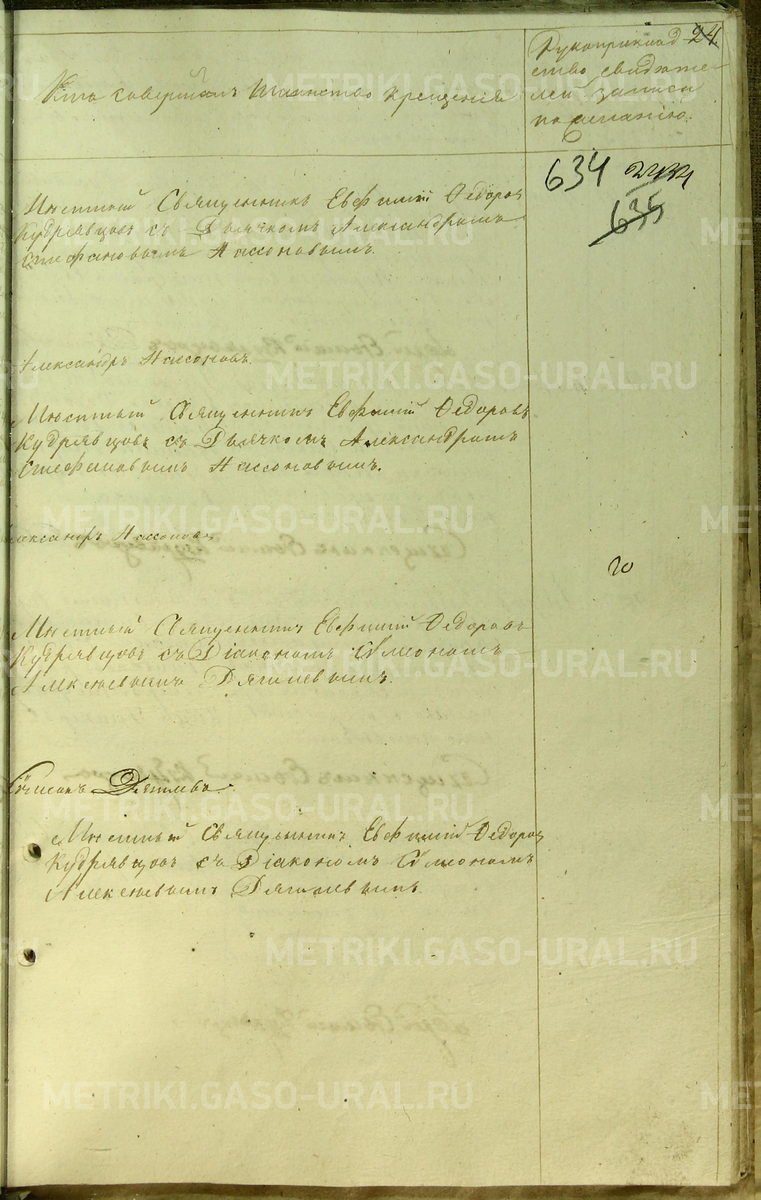 24
Кто совершалъ таинство крещенія
Рукоприклад
ство свидѣте
лей записи
по желанію.
634
635
Мѣстный Священникъ Евфимій Ѳедоров
Кудрявцовъ съ Дьячкомъ Александромъ
Стефановымъ Нассоновымъ.
Александръ Нассоновъ.
Мѣстный Священникъ Евфимій Ѳедоровъ
Кудрявцовъ съ Дьячкомъ Александромъ
Стефановымъ Нассоновымъ.
Александръ Нассоновъ
Мѣстный Священникъ Евфимій Ѳедоровъ
Кудрявцовъ съ Діакономъ Симеономъ
Алексѣевымъ Дягилевымъ.
Дягилевъ
Мѣстный Священникъ Евфимій Ѳедоров
Кудрявцовъ съ Діакономъ Симеономъ
Алексѣевымъ Дягилевымъ.
METRIKI.GASO-URAL.RU